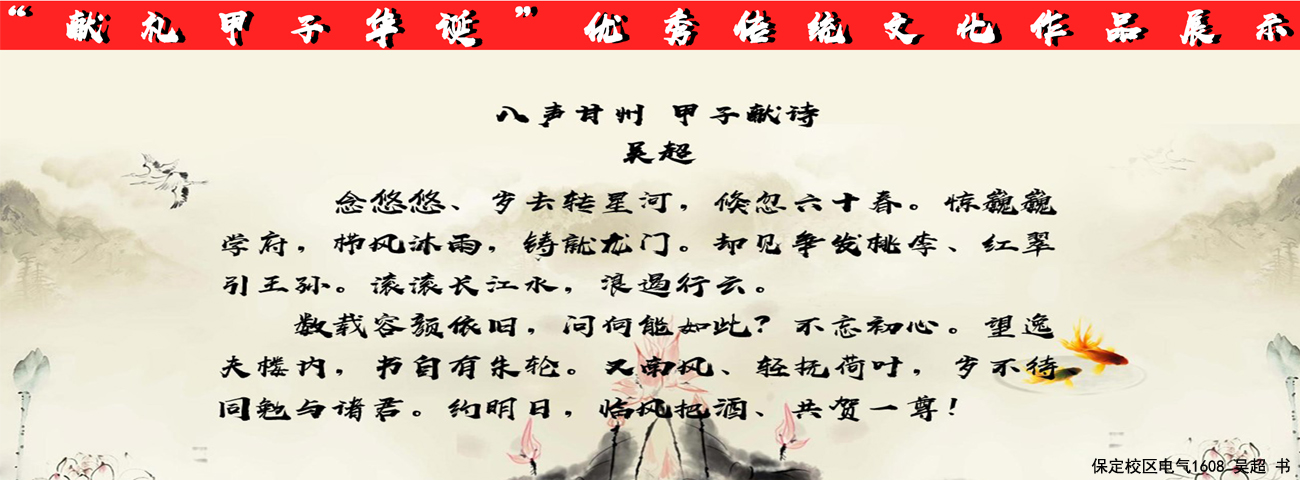 “献礼甲子华诞”优秀传统文化作品展示
八声甘州 甲子献诗
吴超
念悠悠、岁去转星河，倏忽六十春。惊巍巍
学府，栉风沐雨，铸就龙门。却见争发桃李、红翠
引王孙。滚滚长江水，浪遏行云。
数载容颜依旧，问何能如此？不忘初心。望逸
夫楼内，书自有朱轮。又南风、轻抚荷叶，岁不待
同勉与诸君。约明日，临风把酒、共贺一尊！
保定校区电气1608 吴超 书